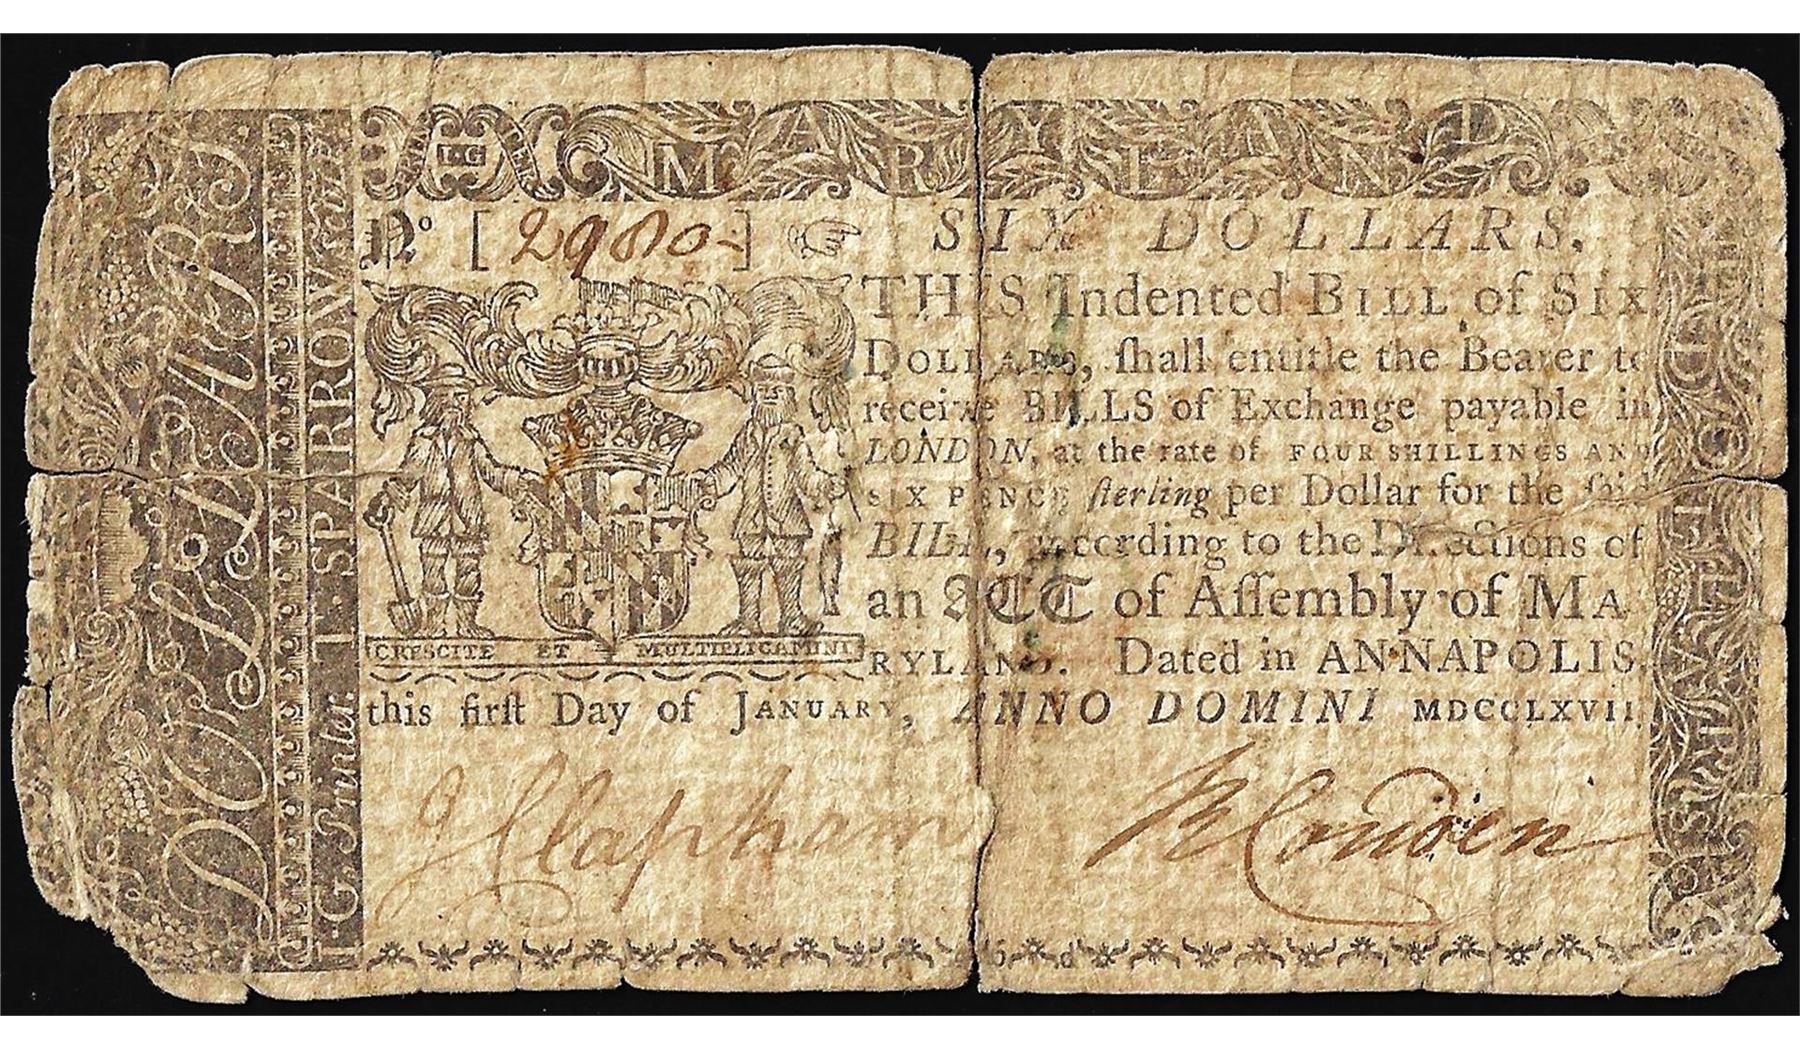 DOLLARS
T. SPARROW
I. G. Printer.
I·G
MARYLAND
No [2980]
SIX DOLLARS.
THIS Indented BILL of SIX
DOLLARS, ſhall entitle the Bearer to
receive BILLS of Exchange payable in
LONDON, at the rate of FOUR SHILLINGS AND
SIX PENCE ſterling per Dollar for the ſaid
BILL, according to the Directions of
an ACT of Aſſembly of MA
RYLAND. Dated in ANNAPOLIS
CRESCITE ET MULTIPLICAMINI
this firſt Day of JANUARY, ANNO DOMINI MDCCLXVII
J Clapham
R Couden
DOLLARS